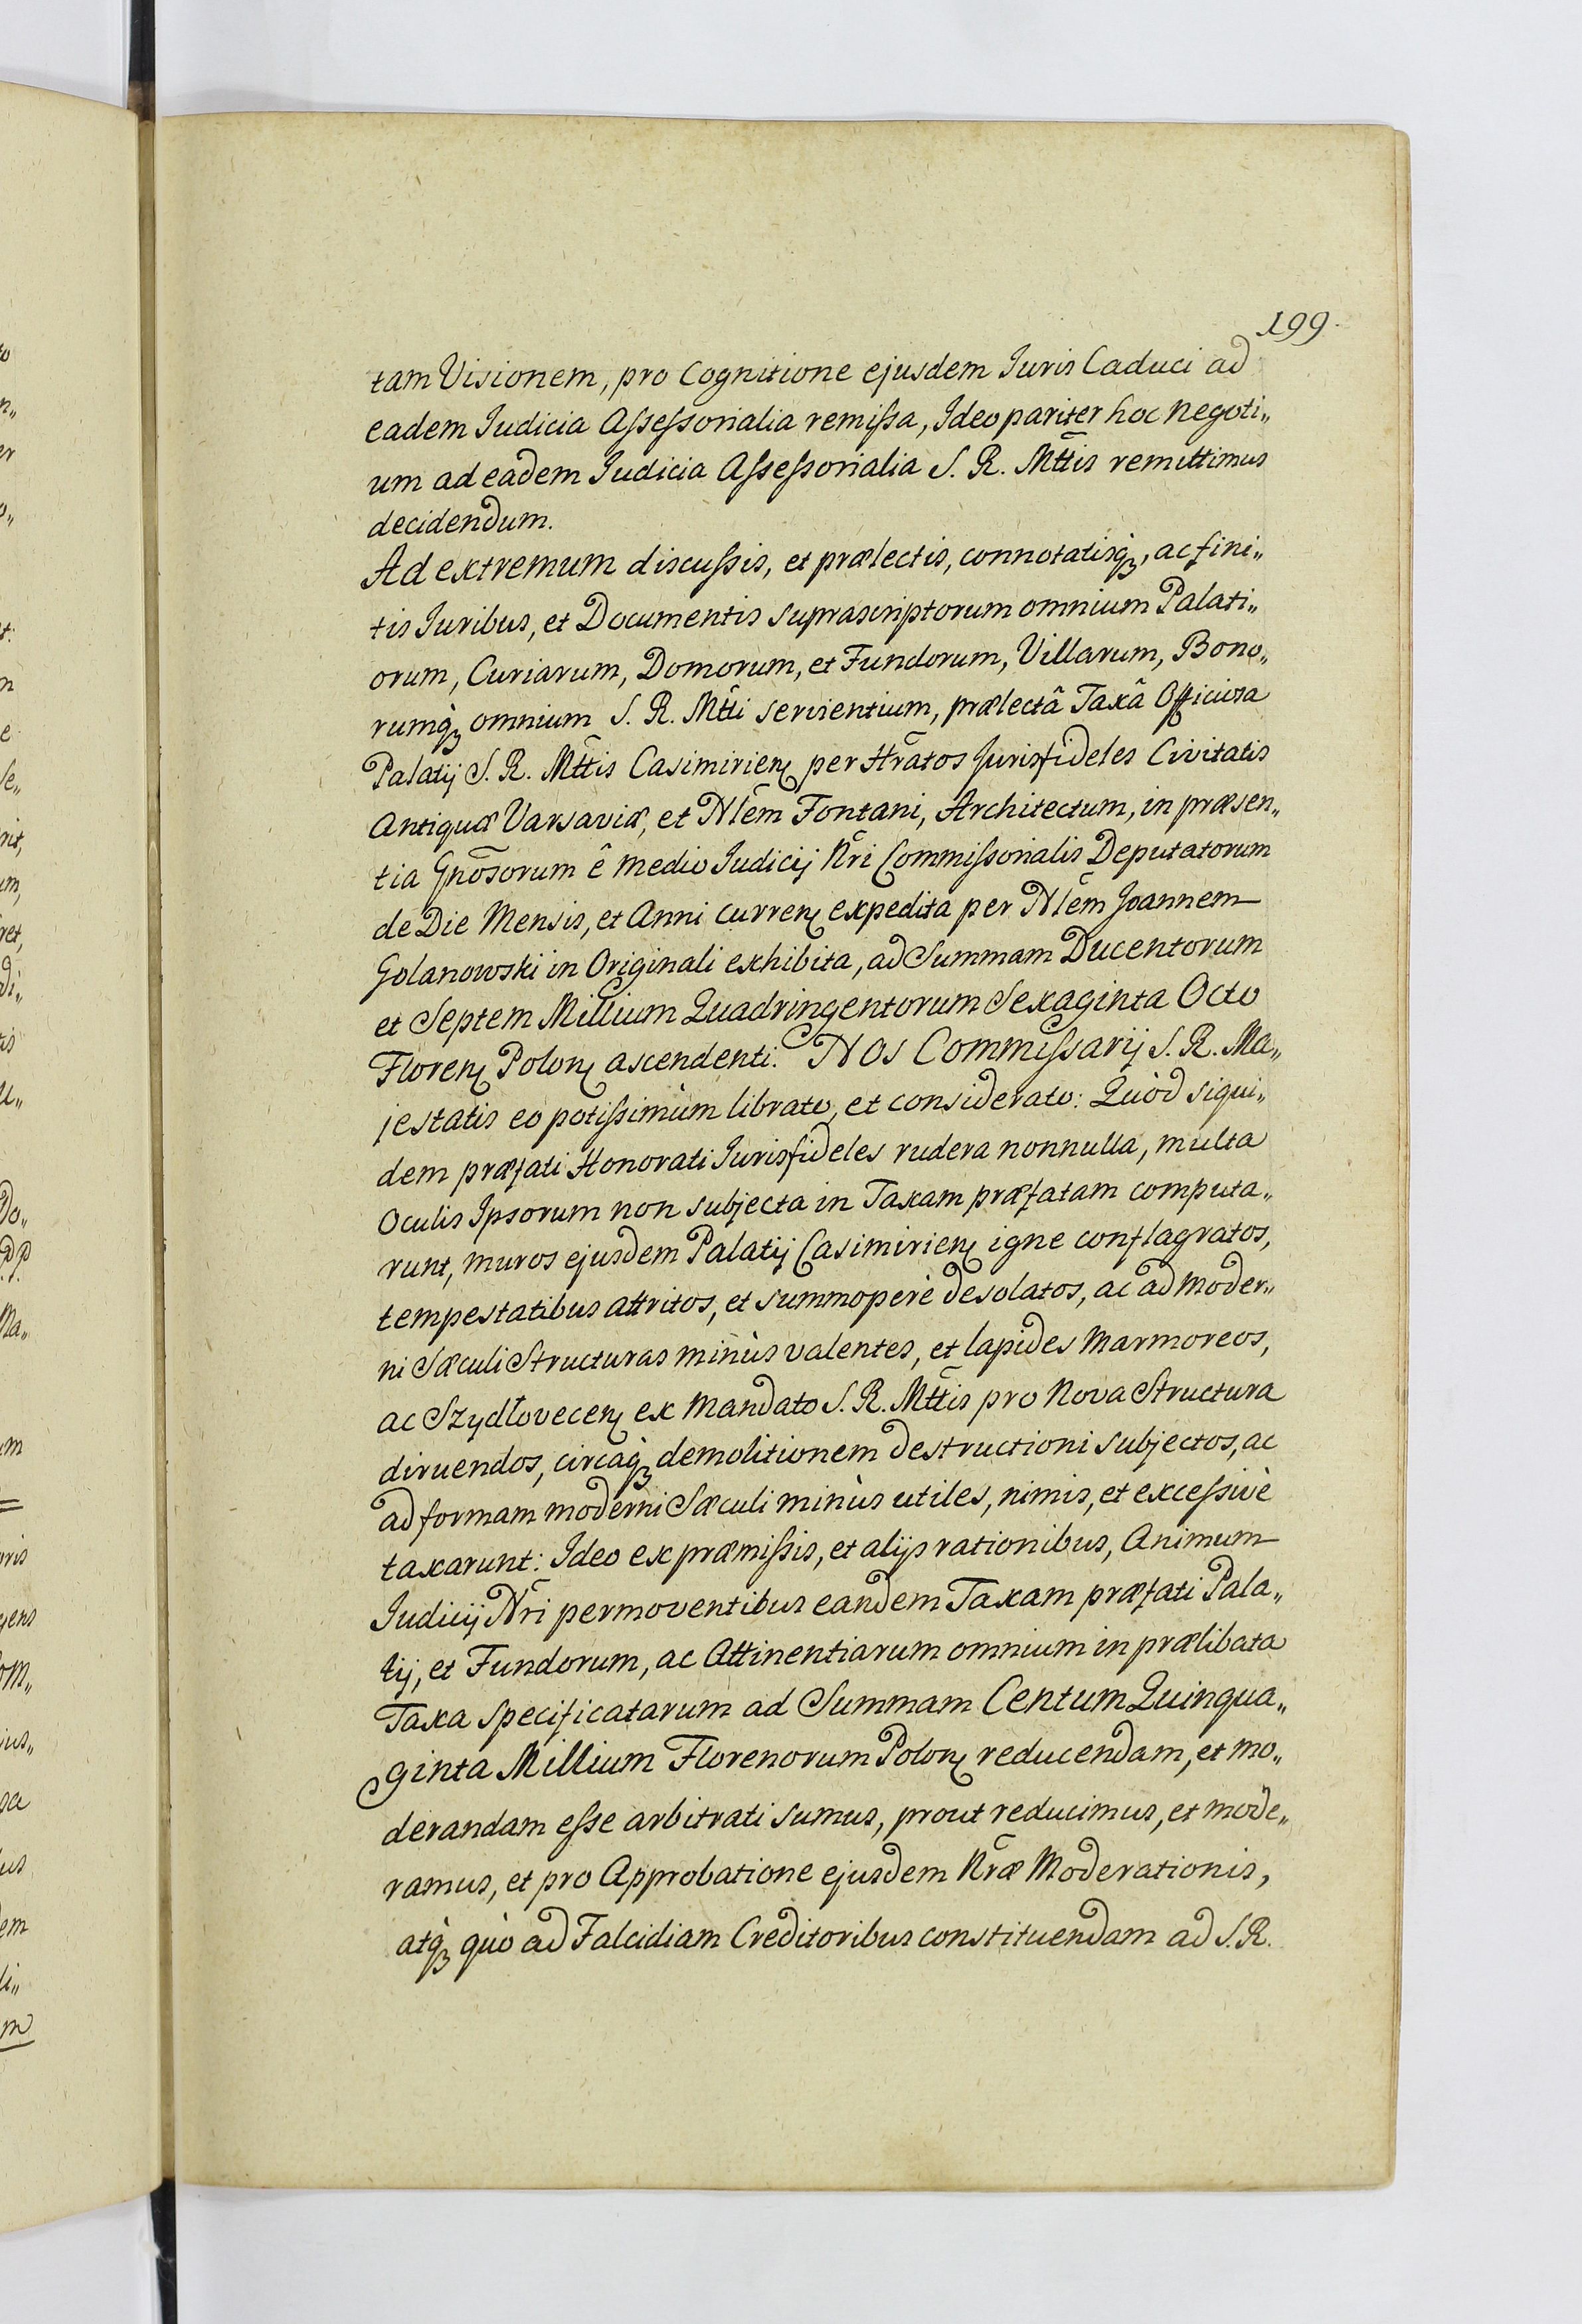 199.
tam Visionem, pro Cognitione ejusdem Juris Caduci ad
eadem Judicia Assessorialia remissa, Ideo pariter hoc negoti„
um ad eadem Judicia Assessorialia S. R. Mttis remittimus
decidendum.
Ad extremum discussis, et prælectis, connotatisq̀ꝫ, ac fini„
tis Juribus, et Documentis suprascriptorum omnium Palati„
orum, Curiarum, Domorum, et Fundorum, Villarum, Bono„
rumq̀ꝫ omnium S. R. Mtti servientium, prælectâ Taxâ Officiosa
Palatij S. R. Mttis Casimirień per Hratos Jurisfideles Civitatis
Antiquæ Varsaviæ, et Nlēm Fontani, Architectum, in præsen„
tia Gnōsorum ê medio Judicij Nr̃i Commissorialis Deputatorum
de Die Mensis, et Anni curreń expedita per Nlēm Joannem
Golanowski in Originali exhibita, ad Summam Ducentorum
et Septem Millium Quadringentorum Sexaginta Octo
Floreń Poloń ascendenti. NOs Commissarij S. R. Ma„
jestatis eo potissimùm librato, et considerato: Quòd siqui„
dem præfati Honorati Jurisfideles rudera nonnulla, multa
Oculis Ipsorum non subjecta in Taxam præfatam computa„
runt, muros ejusdem Palatij Casimirień igne conflagratos,
tempestatibus attritos, et summoperè desolatos, ac ad moder„
ni Sæculi Structuras minùs valentes, et lapides Marmoreos,
ac Szydłoveceń ex Mandato S. R. Mttis pro Nova Structura
diruendos, circaq̀ꝫ demolitionem destructioni subjectos, ac
ad formam moderni Sæculi minùs utiles, nimis, et excessivè
taxarunt: Ideo ex præmissis, et alijs rationibus, Animum
Judicij Nr̃i permoventibus eandem Taxam præfati Pala„
tij, et Fundorum, ac Attinentiarum omnium in prælibata
Taxa specificatarum ad Summam Centum Quinqua„
ginta Millium Florenorum Poloń reducendam, et mo„
derandam esse arbitrati sumus, prout reducimus, et mode„
ramus, et pro Approbatione ejusdem Nr̃æ Moderationis,
atq̀ꝫ quò ad Falcidiam Creditoribus constituendam ad S. R.